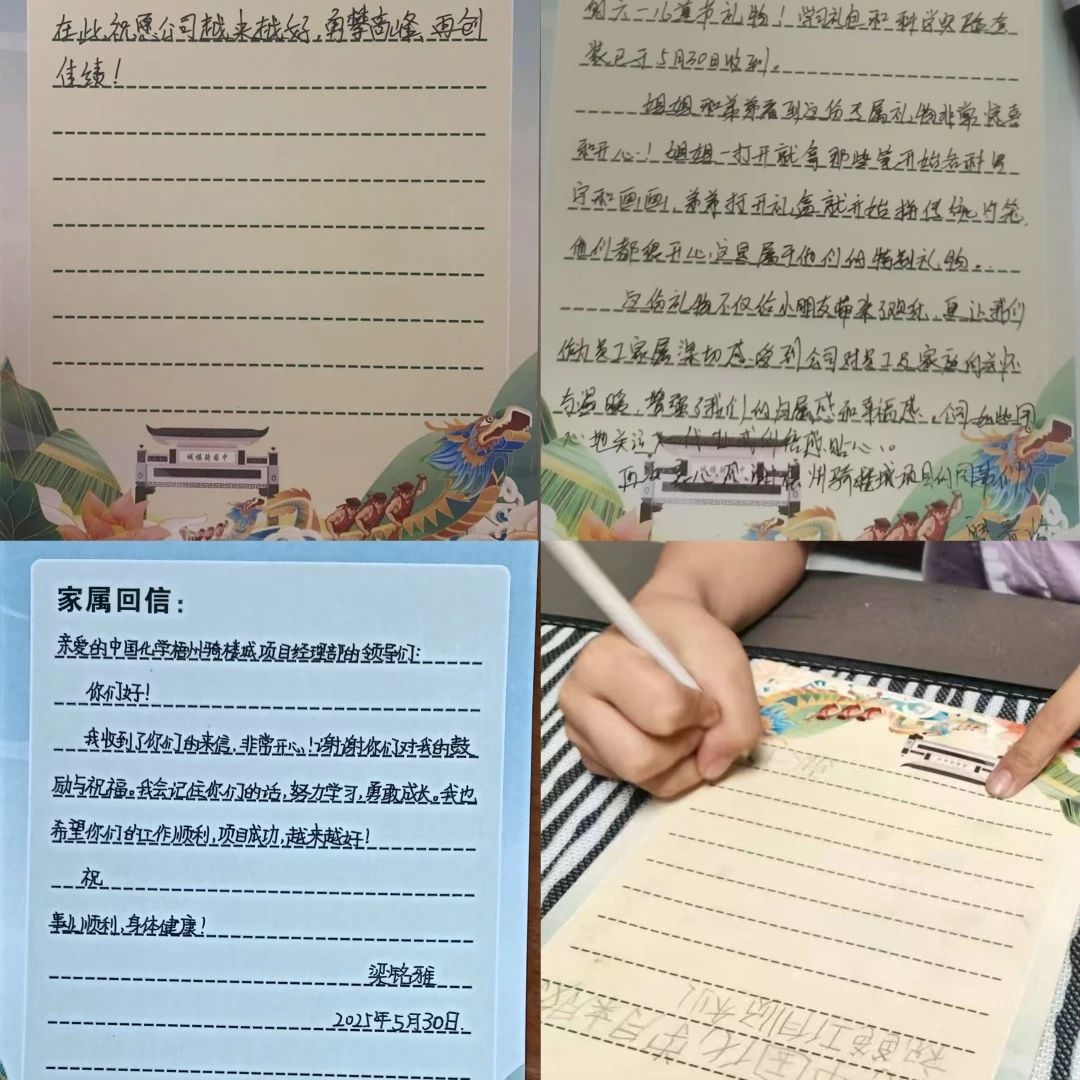 在此,祝愿公司越来越好,勇攀高峰,再创
佳绩!
中国骑楼城
的六一儿童节礼物!学习礼包和科学实验套
装已于5月30日收到。
姐姐和弟弟看到这份专属礼物非常惊喜
和开心!姐姐一打开就拿那些笔开始各种写
字和画画,弟弟打开礼盒就开始拼
他们都很开心,这是属于他们的特别礼物。
这份礼物不仅给小朋友带来了欢乐,更让我们
作为员工家属深切感受到公司对员工及家庭的关怀
与温暖,增强了我们的归属感和幸福感。公司如此用
心地关注 我们倍感贴心。
再次 心感谢梧州骑楼城项目的同事们
家属回信:
亲爱的中国化学梧州骑楼城项目经理部的领导们:
你们好!
我收到了你们的来信,非常开心!谢谢你们对我的鼓
励与祝福。我会记住你们的话,努力学习,勇敢成长。我也
希望你们的工作顺利,项目成功,越来越好!
祝
事业顺利,身体健康!
梁铭雅
2025年5月30日
祝爸爸工作顺利